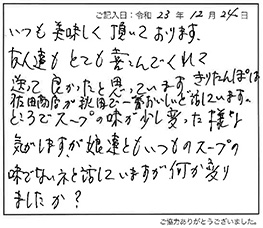 ご記入日：令和 23 年 12 月 24 日
いつも美味しく頂いております。
友人達もとても喜こんでくれて
送って良かったと思っています きりたんぽは
佐田商店が秋田で一番おいしいと話しています。
ところでスープの味が少し変った様な
気がしますが、娘達ともいつものスープの
味でないネと話していますが何か変り
ましたか？
ご協力ありがとうございました。